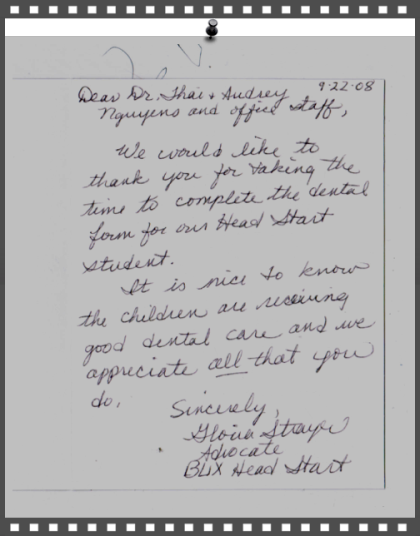 V.
9-22-08
Dear Dr. Thai + Audrey
Nguyens and office staff,
We would like to
thank you for taking the
time to complete the dental
form for our Head Start
student.
It is nice to know
the children are receiving
good dental care and we
appreciate all that you
do.
Sincerely,
Gloria Strayer
Advocate
Blix Head Start